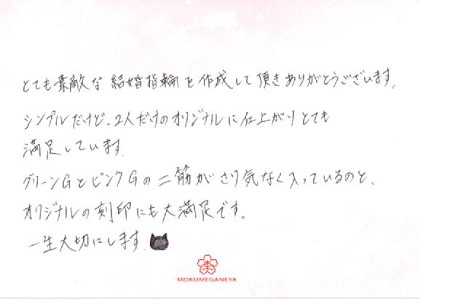 とても素敵な結婚指輪を作成して頂きありがとうございます。
シンプルだけど、2人だけのオリジナルに仕上がりとても
満足しています。
グリーンGとピンクGの二筋がさり気なく入っているのと、
オリジナルの刻印にも大満足です。
一生大切にします
MOKUMEGANEYA